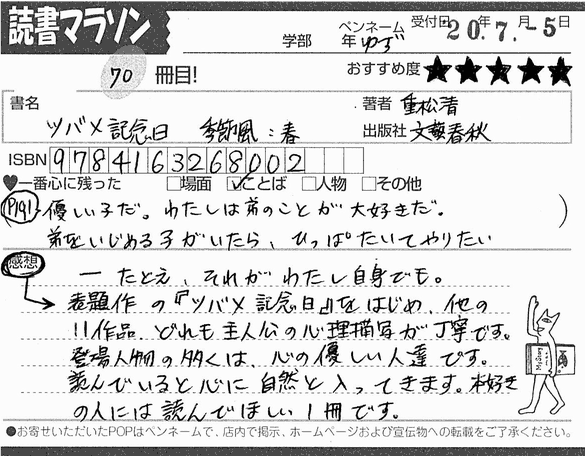 読書マラソン
学部 年 ペンネーム ゆず 受付日 20年7月-5日
70 冊目! おすすめ度 ★★★★★
書名 著者 重松清
ツバメ記念日 季節風:春 出版社 文藝春秋
ISBN 9784163268002
♥一番心に残った □場面 ☑ことば □人物 □その他
P191 優しい子だ。わたしは弟のことが大好きだ。 )
弟をいじめる子がいたら、ひっぱたいてやりたい
感想 ー たとえ、それがわたし自身でも。
→ 表題作の『ツバメ記念日』をはじめ、他の
11作品、どれも主人公の心理描写が丁寧です。
登場人物の多くは、心の優しい人達です。
読んでいると心に自然と入ってきます。本好き
の人には読んでほしい1冊です。
●お寄せいただいたPOPはペンネームで、店内で掲示、ホームページおよび宣伝物への転載をご了承ください。